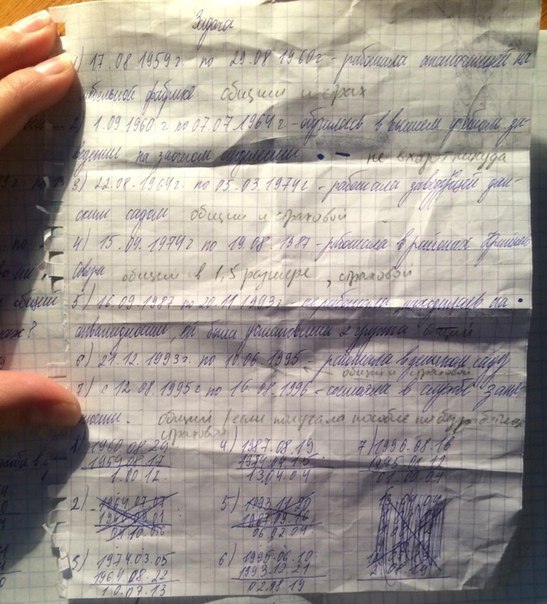 Задача
1) 17.08.1959г по 29.08.1960г - работала на
фабрике общий и страх
2) 1.09 1960г по 07.07.1964г - обучалась в высшем учебном за-
ведении на заочном отделении. - не входит никуда
3) 22.08.1964г. по 05.03.1974г - работала заведующей дет-
ским садом общий и страховой
4) 15.04.1974г по 19.08.1987 - работала в районах Крайнего
Севера общий в 1,5 размере, страховой
5) 16.09.1987 по 20.11.1993г - не работала, находилась на
инвалидности, ей была установлена 2 группа общий
6) 21.12.1993г. по 10.06.1995 - работала в детском саду
общий и страховой
7) с 12.08.1995г по 16.08.1996 - состояла в службе заня-
тости. общий /если получала пособие по безработице
страховой
1) 1960.08.29
1959.08.17
1.00.12
4) 1987.08.19
1974.04.15
13.04.04
7) 1996.08.16
1995.08.12
01.00.04
2) 1964.07.07
5) 1993.11.20
06.02.04
3) 1974.03.05
1964.08.22
6) 1995.06.10
1993.12.21